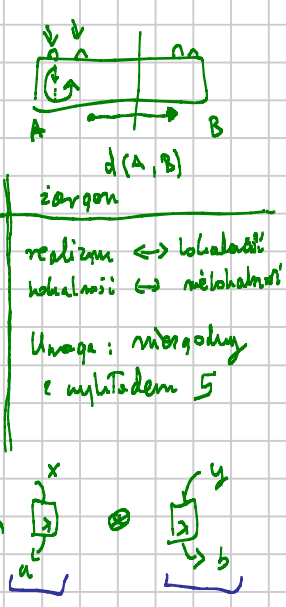 A B
d(A,B)
żargon
realizm ↔ lokalność
lokalność ↔ nielokalność
Uwaga: niezgodny
z wykładem 5
x y
λ ⊗ λ
a b